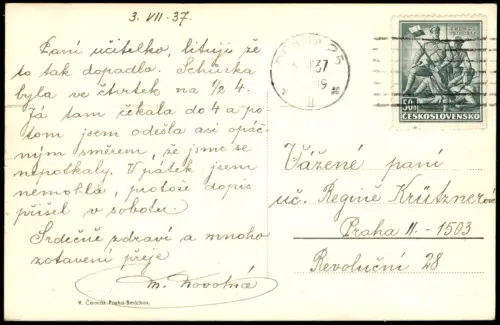 3. VII - 37.
Paní učitelko, lituji že
to tak dopadlo. Schůzka
byla ve čtvrtek na 1/2 4.
Já tam čekala do 4 a po-
tom jsem odešla asi opač-
ným směrem, že jsme se
nepotkaly. V pátek jsem
nemohla, protože dopis
přišel v sobotu.
Srdečně zdraví a mnoho
zotavení přeje
M. Novotná
V. Čermák-Praha-Smíchov.
37
II
50h
ČESKOSLOVENSKO
Vážené paní
uč. Regině Krütznerové
Praha II. - 1503
Revoluční 28